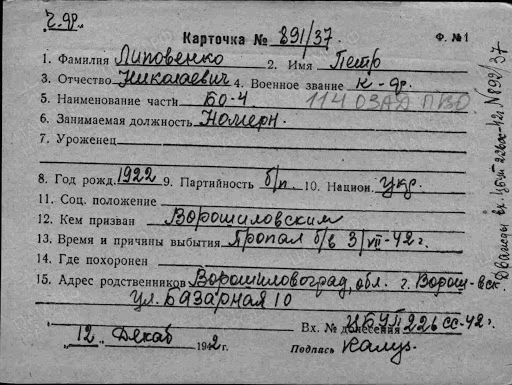 г. др.
Карточка № 891/37 Ф. №1
1. Фамилия Липовенко 2. Имя Петр
3. Отчество Николаевич 4. Военное звание к-др.
5. Наименование части БО-4 114 ОЗАД ПВО
6. Занимаемая должность Номерн.
7. Уроженец
8. Год рожд. 1922 9. Партийность б/п 10. Национ. укр.
11. Соц. положение
12. Кем призван Ворошиловским
13. Время и причины выбытия Пропал б/в 3/VII-42 г.
14. Где похоронен
15. Адрес родственников Ворошиловоград. обл. г. Ворош-вск
ул. Базарная 10
Вх. № донесения 226сс-42г.
„12" Декаб 1942г. Подпись
Дважды вх. 226сс-42г №892/37